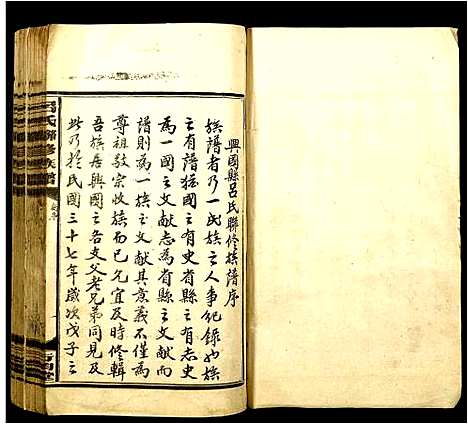 興國縣呂氏聯修族譜序
族譜者乃一氏族之人事紀錄也族
之有譜猶國之有史省縣之有志史
為一國之文献志為省縣之文献而
譜則為一族之文献其意義不僅為
尊祖敬宗收族而已允宜及時修輯
吾族居興國之各支父老兄弟同見及
此乃於民國三十七年歲次戊子之
呂氏聯修族譜